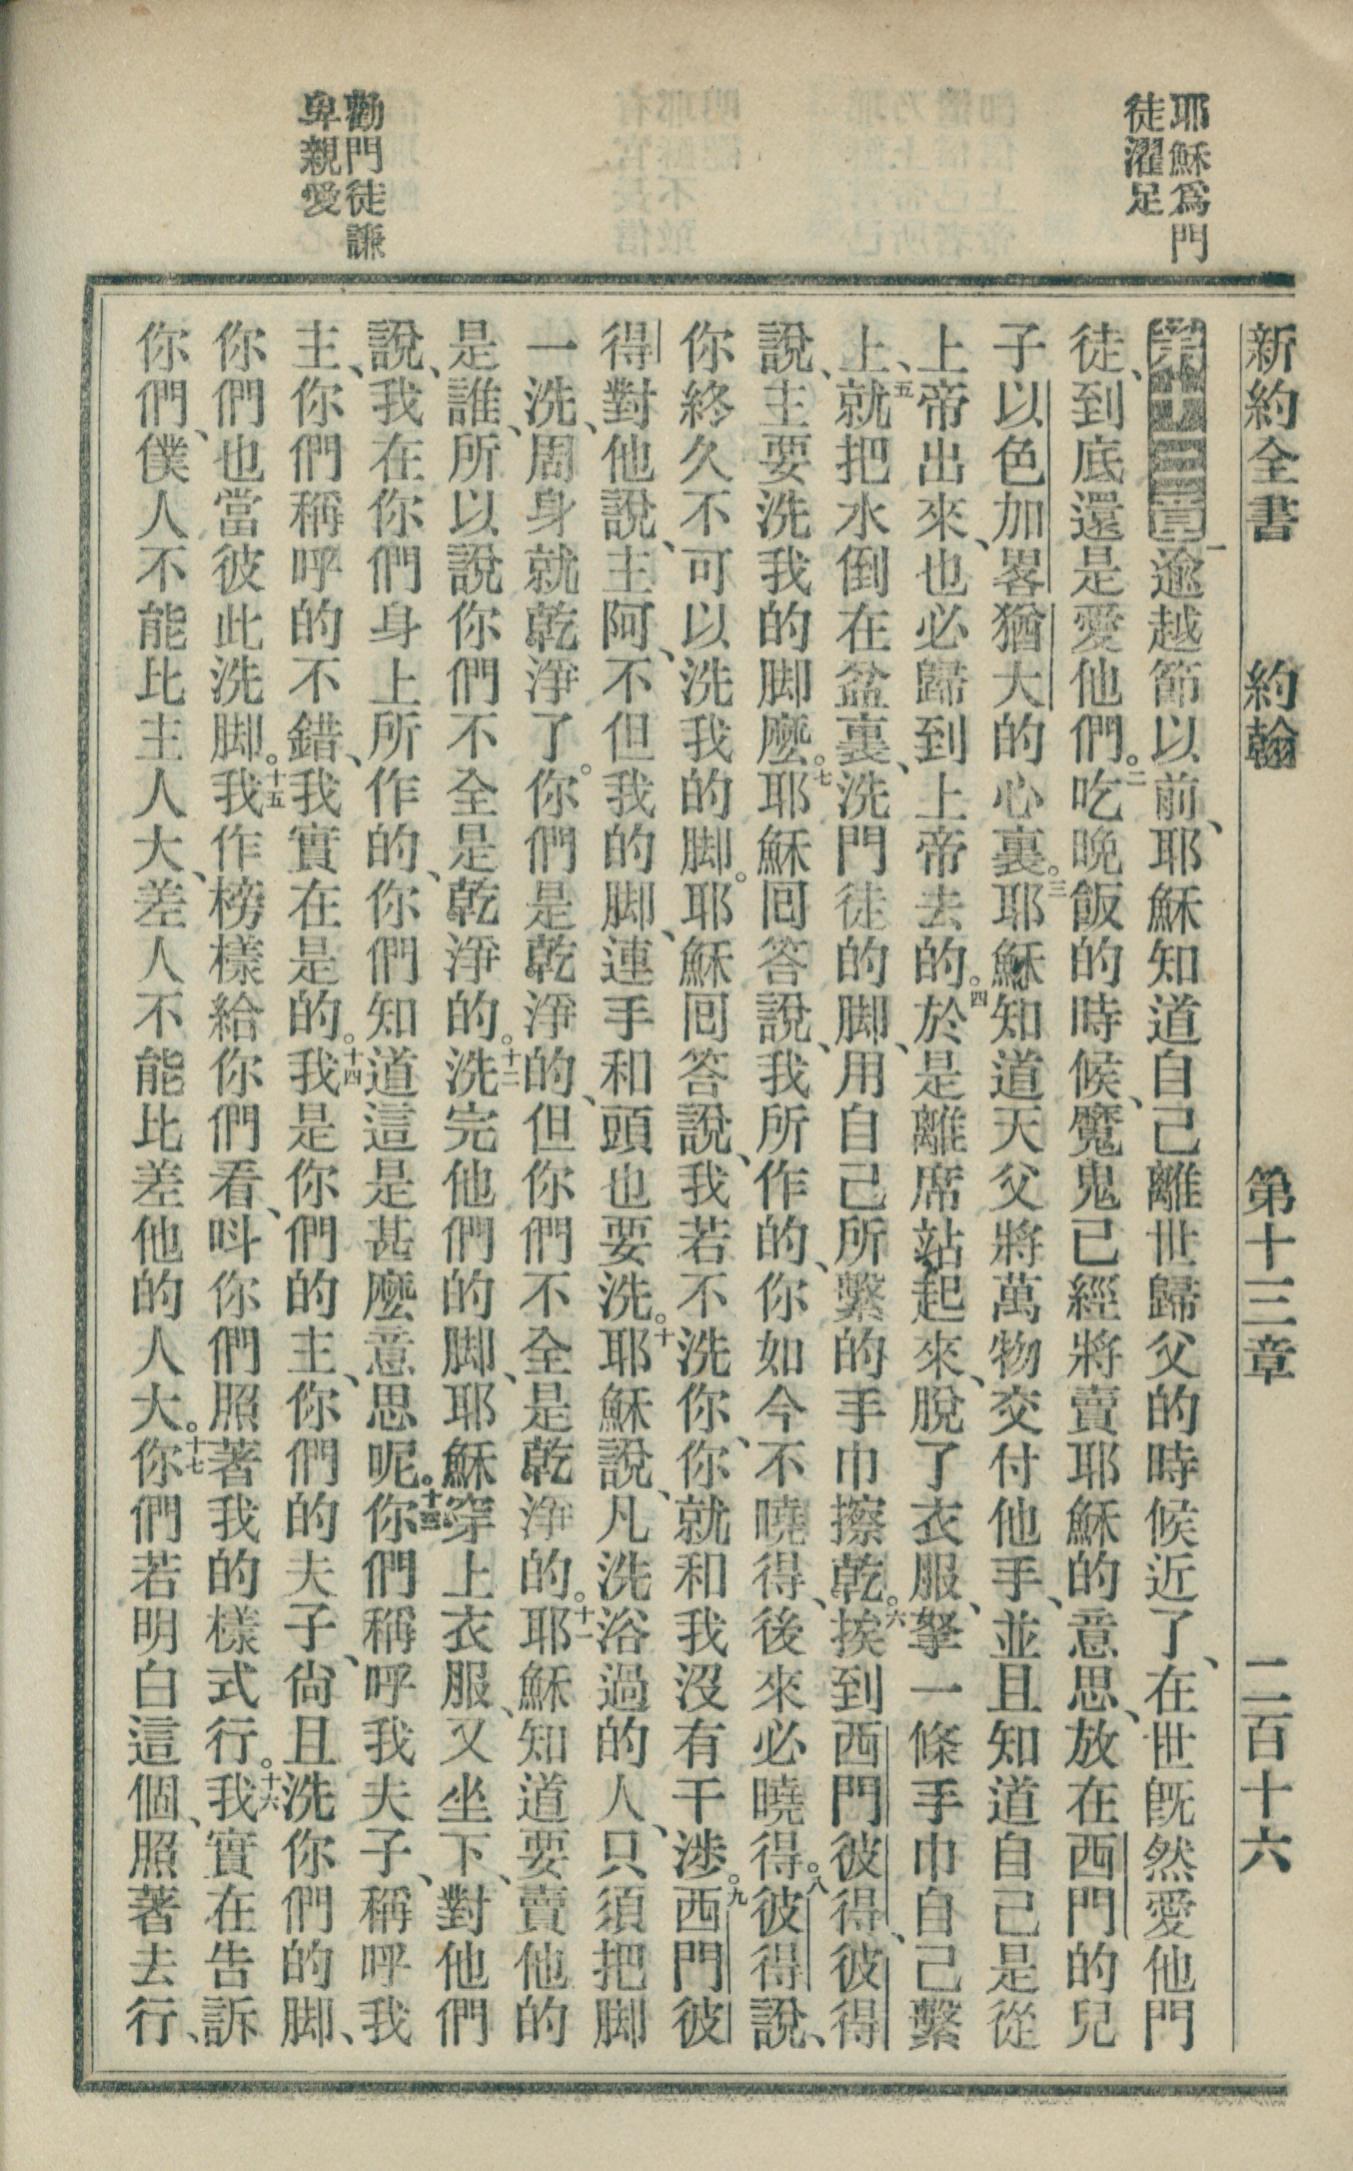 新約全書 約翰 第十三章 二百十六
耶穌爲門
徒濯足
勸門徒謙
卑親愛
第十三章 一逾越節以前、耶穌知道自己離世歸父的時候近了、在世旣然愛他門
徒、到底還是愛他們。二吃晚飯的時候、魔鬼已經將賣耶穌的意思、放在西門的兒
子以色加畧猶大的心裏。三耶穌知道天父將萬物交付他手、並且知道自己是從
上帝出來、也必歸到上帝去的。四於是離席站起來、脫了衣服、拏一條手巾自己繫
上、五就把水倒在盆裏、洗門徒的脚、用自己所繫的手巾擦乾。六挨到西門彼得、彼得
說、主要洗我的脚麽。七耶穌回答說、我所作的、你如今不曉得、後來必曉得。八彼得說、
你終久不可以洗我的脚。耶穌回答說、我若不洗你、你就和我沒有干涉。九西門彼
得對他說、主阿、不但我的脚、連手和頭也要洗。十耶穌說、凡洗浴過的人、只須把脚
一洗、周身就乾淨了。你們是乾淨的、但你們不全是乾淨的。十一耶穌知道要賣他的
是誰、所以說你們不全是乾淨的。十二洗完他們的脚、耶穌穿上衣服、又坐下、對他們
說、我在你們身上所作的、你們知道這是甚麽意思呢。十三你們稱呼我夫子、稱呼我
主、你們稱呼的不錯、我實在是的。十四我是你們的主、你們的夫子、尙且洗你們的脚、
你們也當彼此洗脚。十五我作榜樣給你們看、呌你們照著我的樣式行。十六我實在告訴
你們、僕人不能比主人大、差人不能比差他的人大。十七你們若明白這個、照著去行、